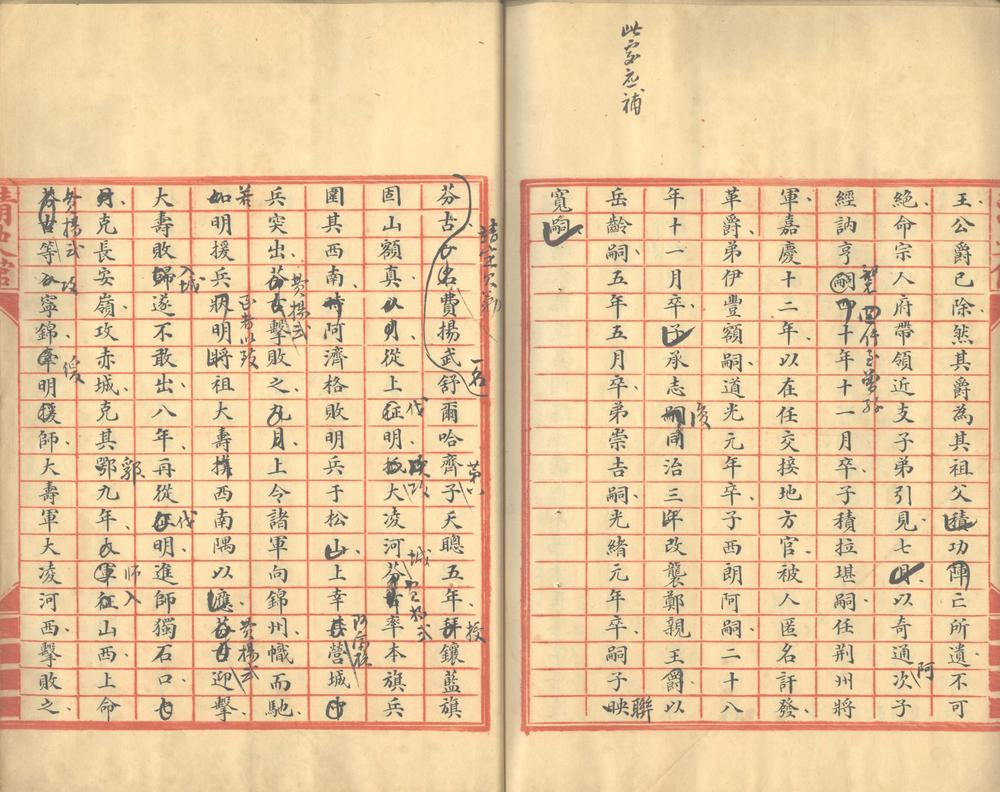 此處應補
王公爵已除然其爵為其祖父積功陣亡所遺不可
絕命宗人府帶領近支子弟引見七月以奇通次子
阿
經訥亨嗣四十年十一月卒子積拉堪嗣任荆州將
軍嘉慶十二年以在任交接地方官被人匿名訐發
革爵弟伊豐額嗣道光元年卒子西朗阿嗣二十八
年十一月卒子承志嗣同治三年改襲鄭親王爵以
後
岳齡嗣五年五月卒弟崇吉嗣光緒元年卒嗣子映
聯
寬嗣
芬古名費揚武舒爾哈齊子天聰五年拜鑲藍旗
一名
第八
授
固山額真從上征明大凌河芬古率本旗兵
伐
城
圍其西南時阿濟格敗明兵于松山上幸其營城中
兵突出芬古擊敗之九月上令諸軍向錦州幟而馳
費揚武
如明援兵狀明將祖大壽揕西南隅以應芬古迎擊
若
費揚武
大壽敗歸遂不敢出八年再從征明進師獨石口七
入城
伐
月克長安嶺攻赤城克其鄂九年軍征山西上命
郭
師入
芬古等攻寧錦牽明援師大壽軍大凌河西擊敗之
費揚武
攻
清史館